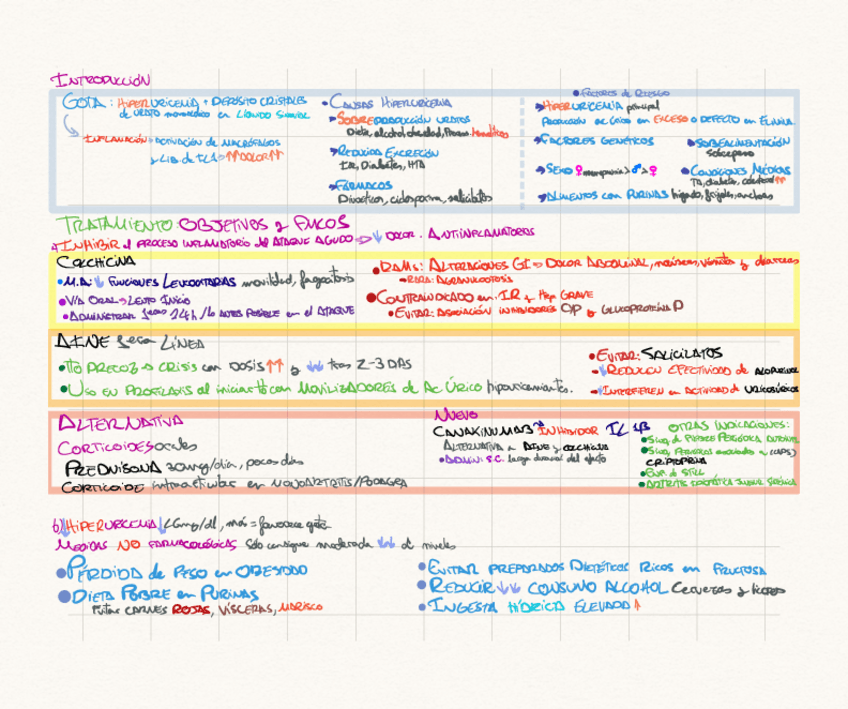 INTRODUCCIÓN
GOTA: HIPERURICEMIA + DEPÓSITO CRISTALES
de URATO monosódico en LÍQUIDO SINOVIAL
INFLAMACIÓN → ACTIVACIÓN DE MACRÓFAGOS
y LIB. de IL1 → ↑↑DOLOR↑↑
• CAUSAS HIPERURICEMIA
→ SOBREPRODUCCIÓN URATOS
Dieta, alcohol, obesidad,
→ REDUCIDA EXCRECIÓN
Diabetes, HTA
→ FÁRMACOS
Diuréticos, ciclosporina, salicilatos
• FACTORES DE RIESGO
→ HIPERURICEMIA principal
PRODUCCIÓN ac. úrico en EXCESO o DEFECTO en ELIMIN.
→ FACTORES GENÉTICOS
→ SOBREALIMENTACIÓN
sobrepeso
→ SEXO ♀ menopausia > ♂ > ♀
• CONDICIONES MÉDICAS
diabetes, colesterol ↑↑
→ ALIMENTOS con PURINAS hígado, frijoles, anchoas
TRATAMIENTO: OBJETIVOS y FMCOS
a) INHIBIR el PROCESO INFLAMATORIO del ATAQUE AGUDO → ↓ DOLOR. ANTIINFLAMATORIOS
COLCHICINA
• M.A: ↓ FUNCIONES LEUCOCITARIAS movilidad, fagocitosis
• VÍA ORAL → LENTO INICIO
• ADMINISTRAR 1eras 24h / lo ANTES POSIBLE en el ATAQUE
• RAMs: ALTERACIONES GI → DOLOR ABDOMINAL, náuseas, vómitos y diarreas
→ RARA: AGRANULOCITOSIS
• CONTRAINDICADO en IR y Hep GRAVE
• EVITAR: ASOCIACIÓN INHIBIDORES CYP y GLUCOPROTEÍNA P
AINE 1era LÍNEA
• TTO PRECOZ → CRISIS con DOSIS ↑↑ y ↓↓ tras 2-3 DÍAS
• USO en PROFILAXIS al iniciar tto con MOVILIZADORES de Ac ÚRICO hipouricemiantes.
• EVITAR: SALICILATOS
→ ↓ REDUCEN EFECTIVIDAD de ALOPURINOL
→ INTERFIEREN en ACTIVIDAD de URICOSÚRICOS
ALTERNATIVA
CORTICOIDES orales
PREDNISONA 30mg/día, pocos días
CORTICOIDE intraarticular en MONOARTRITIS/PODAGRA
NUEVO
CANAKINUMAB → INHIBIDOR IL 1β
ALTERNATIVA a AINE y COLCHICINA
• ADMIN: S.C. larga duración del efecto
OTRAS INDICACIONES:
• Sind. de FIEBRE PERIÓDICA AUTOINFL.
• Sind. PERIÓDICOS asociados a (CAPS)
CRIOPIRINA
• Enf. de STILL
• ARTRITIS IDIOPÁTICA JUVENIL SISTÉMICA
b) ↓ HIPERURICEMIA ↓ <6mg/dl, más = favorece gota
MEDIDAS NO FARMACOLÓGICAS Sólo consigue moderada ↓↓ de niveles
• PÉRDIDA de PESO en OBESIDAD
• DIETA POBRE en PURINAS
Evitar CARNES ROJAS, VÍSCERAS, MARISCO
• EVITAR PREPARADOS DIETÉTICOS RICOS en FRUCTOSA
• REDUCIR ↓↓ CONSUMO ALCOHOL Cervezas y licores
• INGESTA HÍDRICA ELEVADA ↑